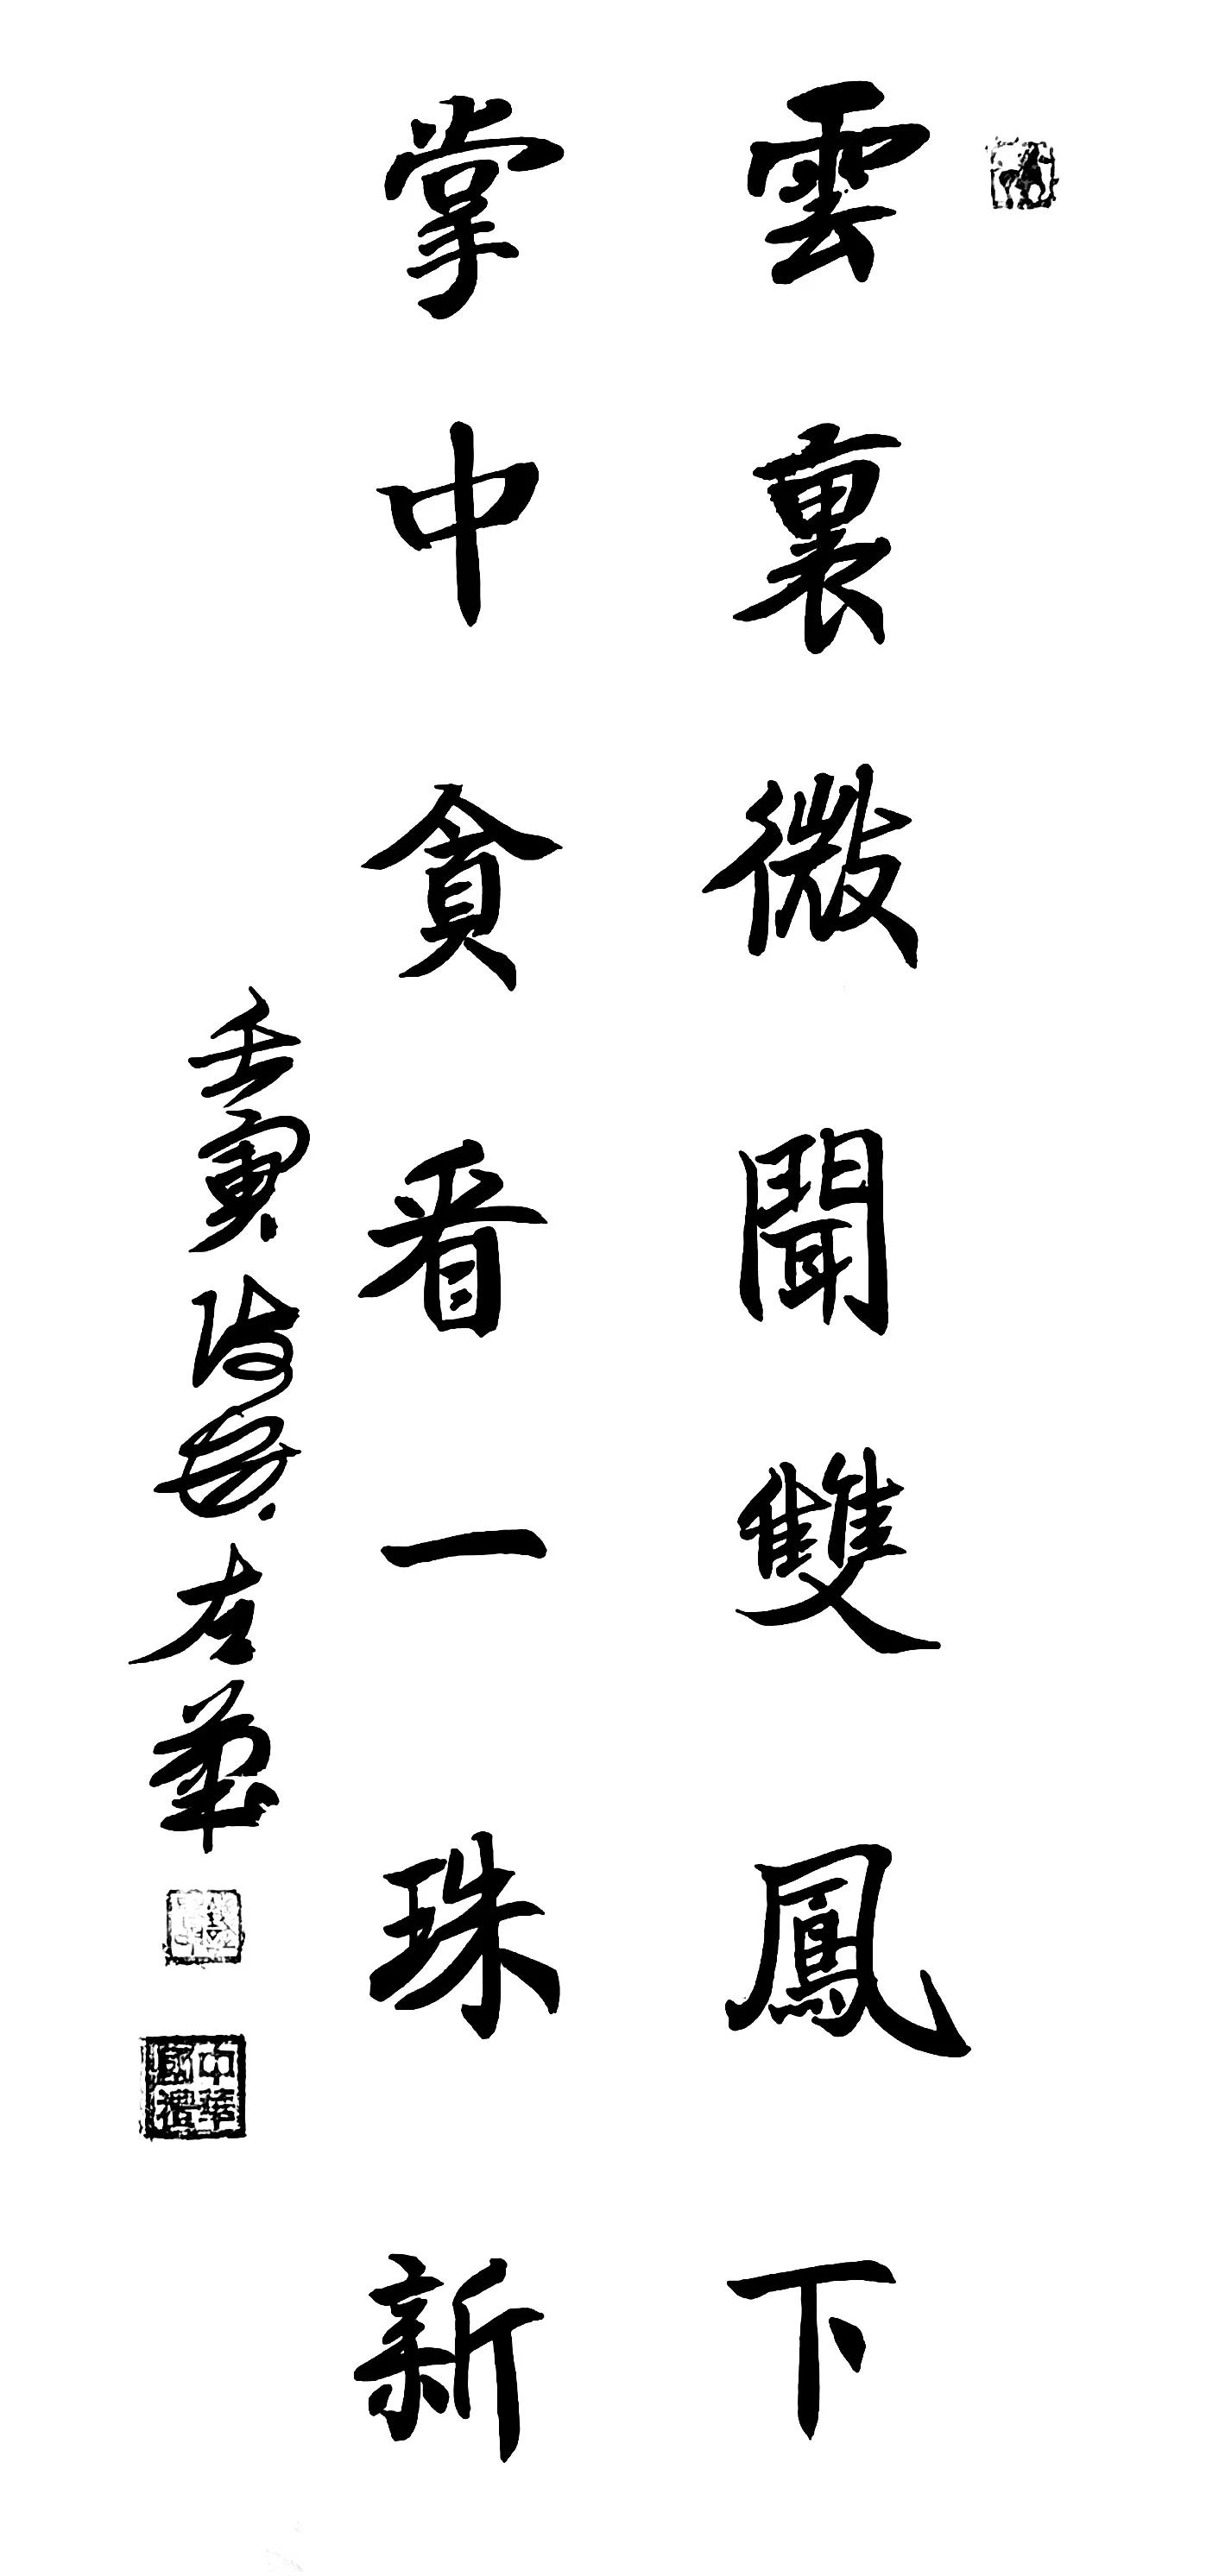 雲裏微聞雙鳳下
掌中貪看一珠新
壬寅
中華國禮